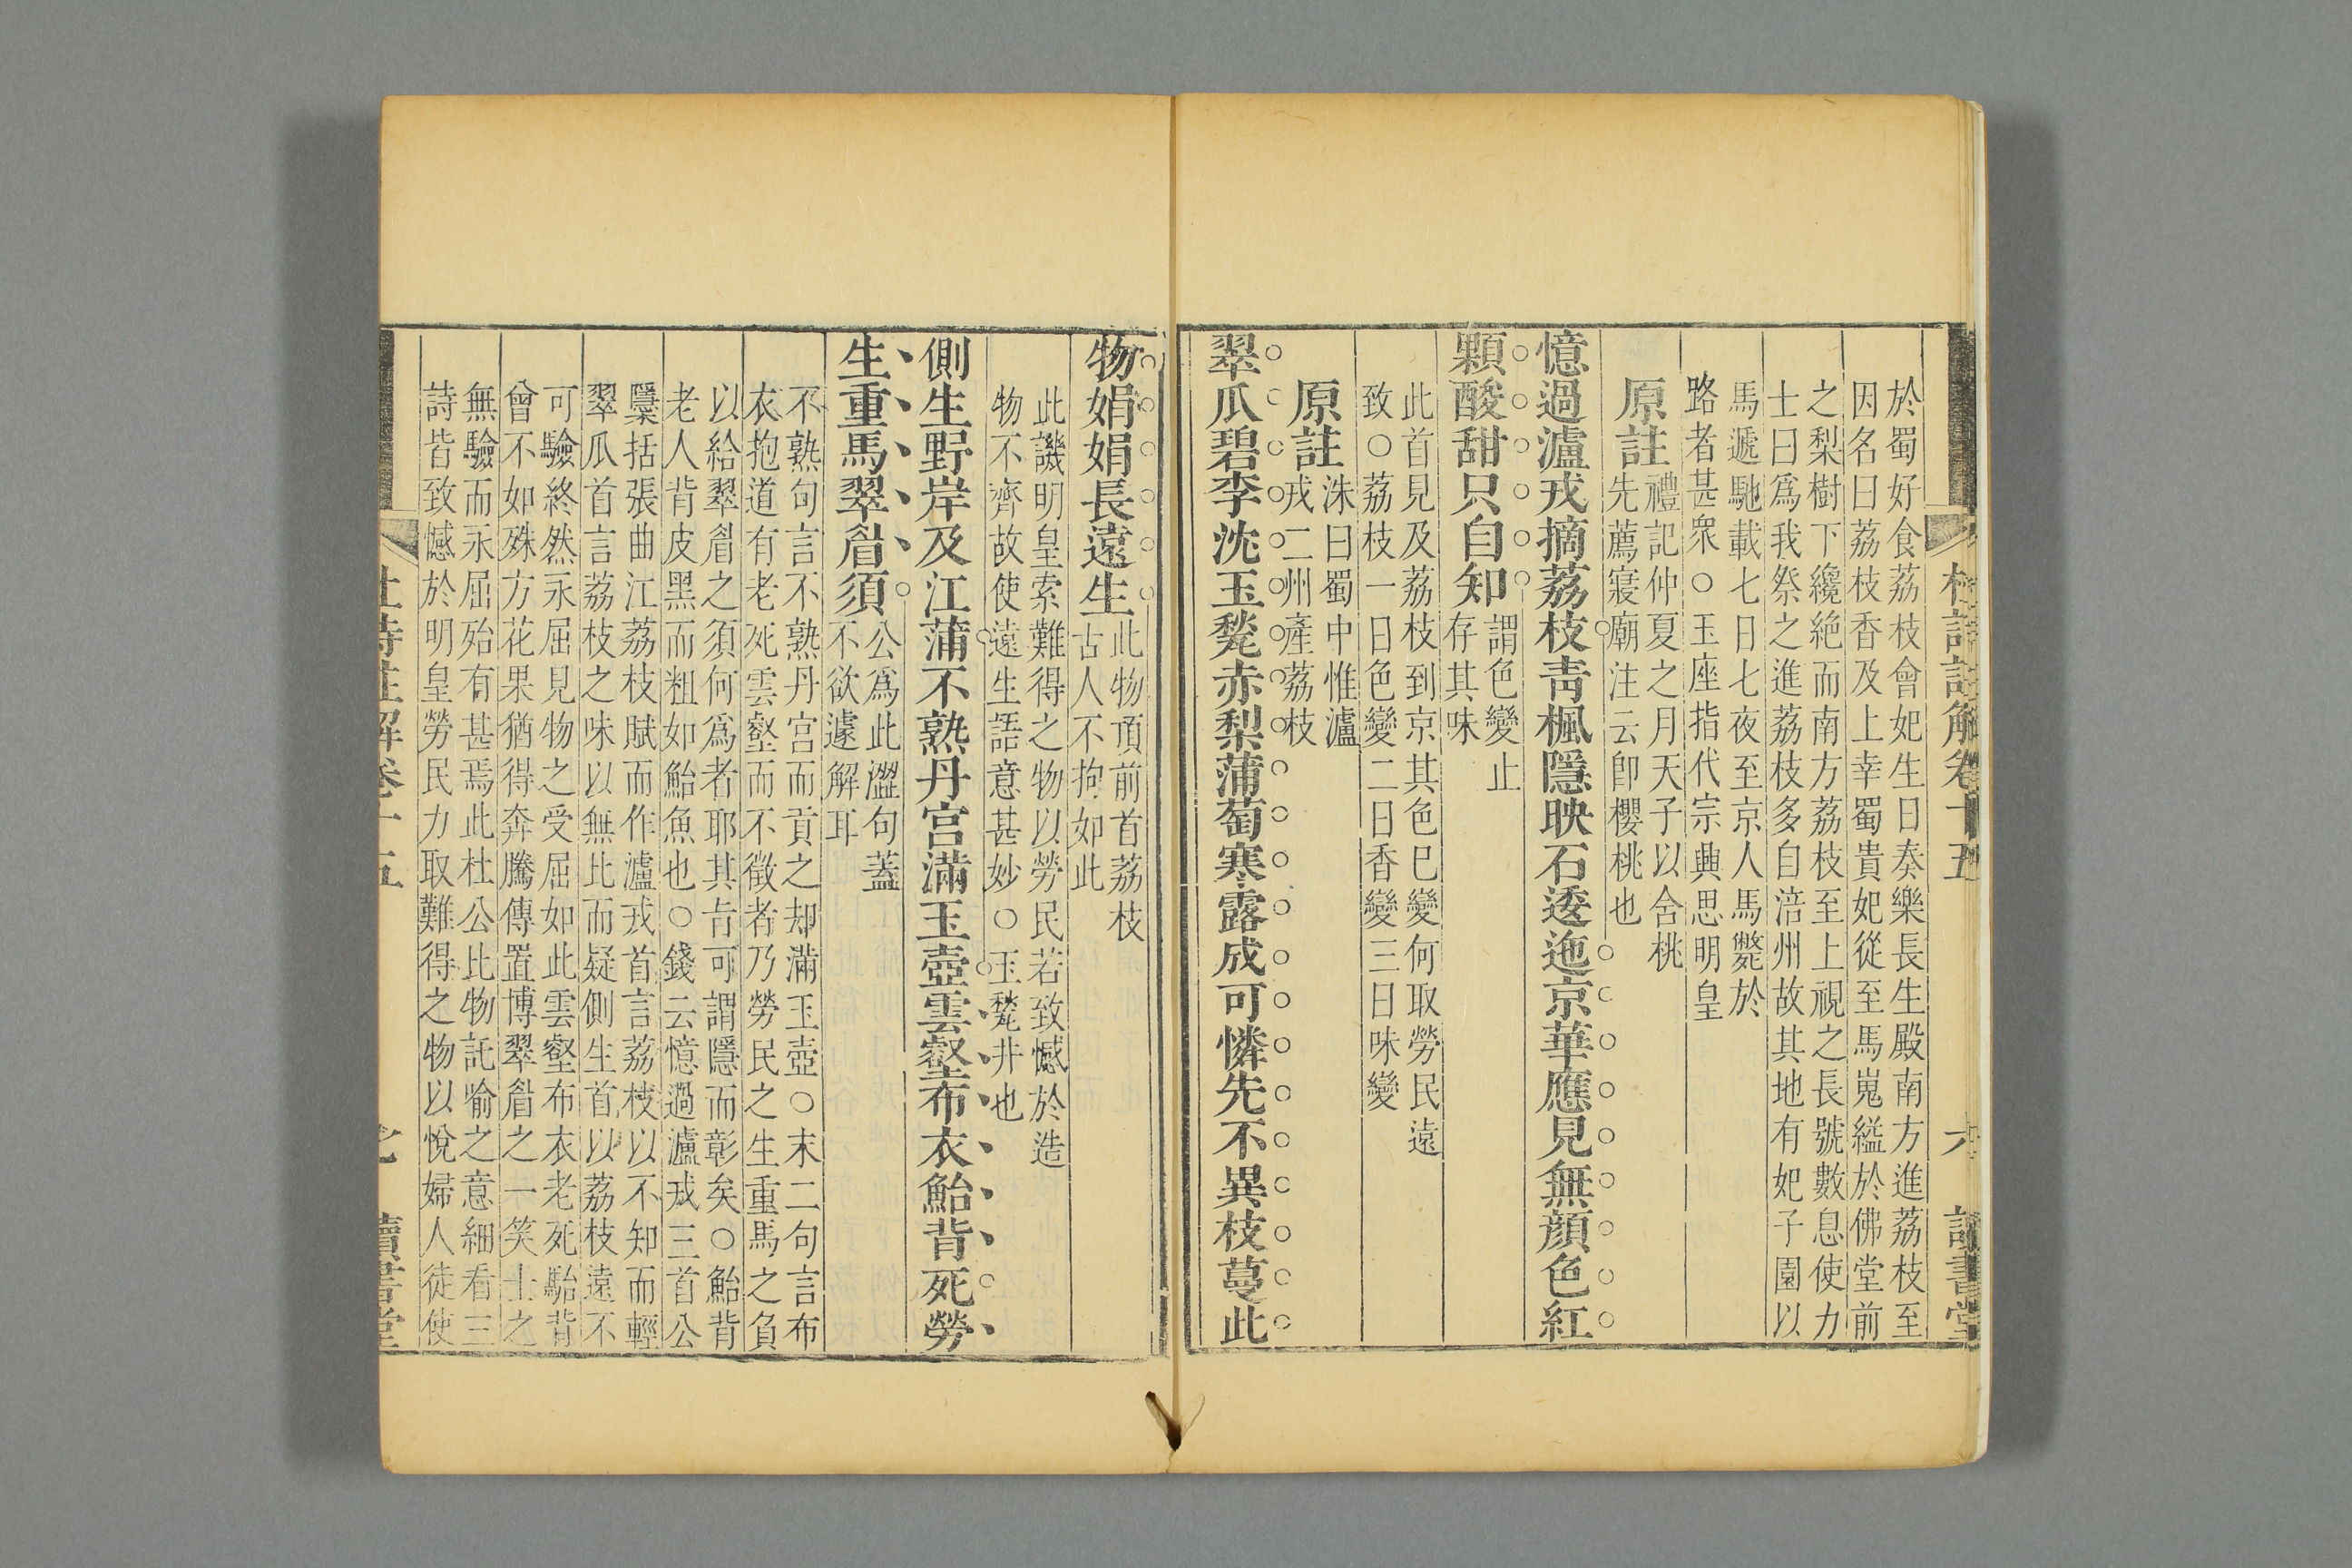 於蜀好食荔枝會妃生日奏樂長生殿南方進荔枝至
因名曰荔枝香及上幸蜀貴妃從至馬嵬縊於佛堂前
之梨樹下纔絶而南方荔枝至上視之長號數息使力
士曰爲我祭之進荔枝多自涪州故其地有妃子園以
馬遞馳載七日七夜至京人馬斃於
路者甚衆○玉座指代宗興思明皇
原註
禮記仲夏之月天子以含桃
先薦寢廟注云卽櫻桃也
憶過瀘戎摘荔枝靑楓隱映石逶迤京華應見無顔色紅
顆酸甜只自知
謂色變止
存其味
此首見及荔枝到京其色已變何取勞民遠
致○荔枝一日色變二日香變三日味變
原註
洙曰蜀中惟瀘
戎二州產荔枝
翠瓜碧李沈玉甃赤梨蒲萄寒露成可憐先不異枝蔓此
物娟娟長遠生
此物頂前首荔枝
古人不拘如此
此譏明皇索難得之物以勞民若致憾於造
物不齊故使遠生語意甚妙○玉甃井也
側生野岸及江蒲不熟丹宮滿玉壺雲壑布衣鮐背死勞
生重馬翠眉須
公爲此澀句蓋
不欲遽解耳
不熟句言不熟丹宮而貢之却滿玉壺○末二句言布
衣抱道有老死雲壑而不徵者乃勞民之生重馬之負
以給翠眉之須何爲者耶其旨可謂隱而彰矣○鮐背
老人背皮黑而粗如鮐魚也○錢云憶過瀘戎三首公
櫽括張曲江荔枝賦而作瀘戎首言荔枝以不知而輕
翠瓜首言荔枝之味以無比而疑側生首以荔枝遠不
可驗終然永屈見物之受屈如此雲壑布衣老死駘背
曾不如殊方花果猶得奔騰傳置博翠眉之一笑士之
無驗而永屈殆有甚焉此杜公比物託喻之意細看三
詩皆致憾於明皇勞民力取難得之物以悅婦人徒使
杜詩註解卷十五